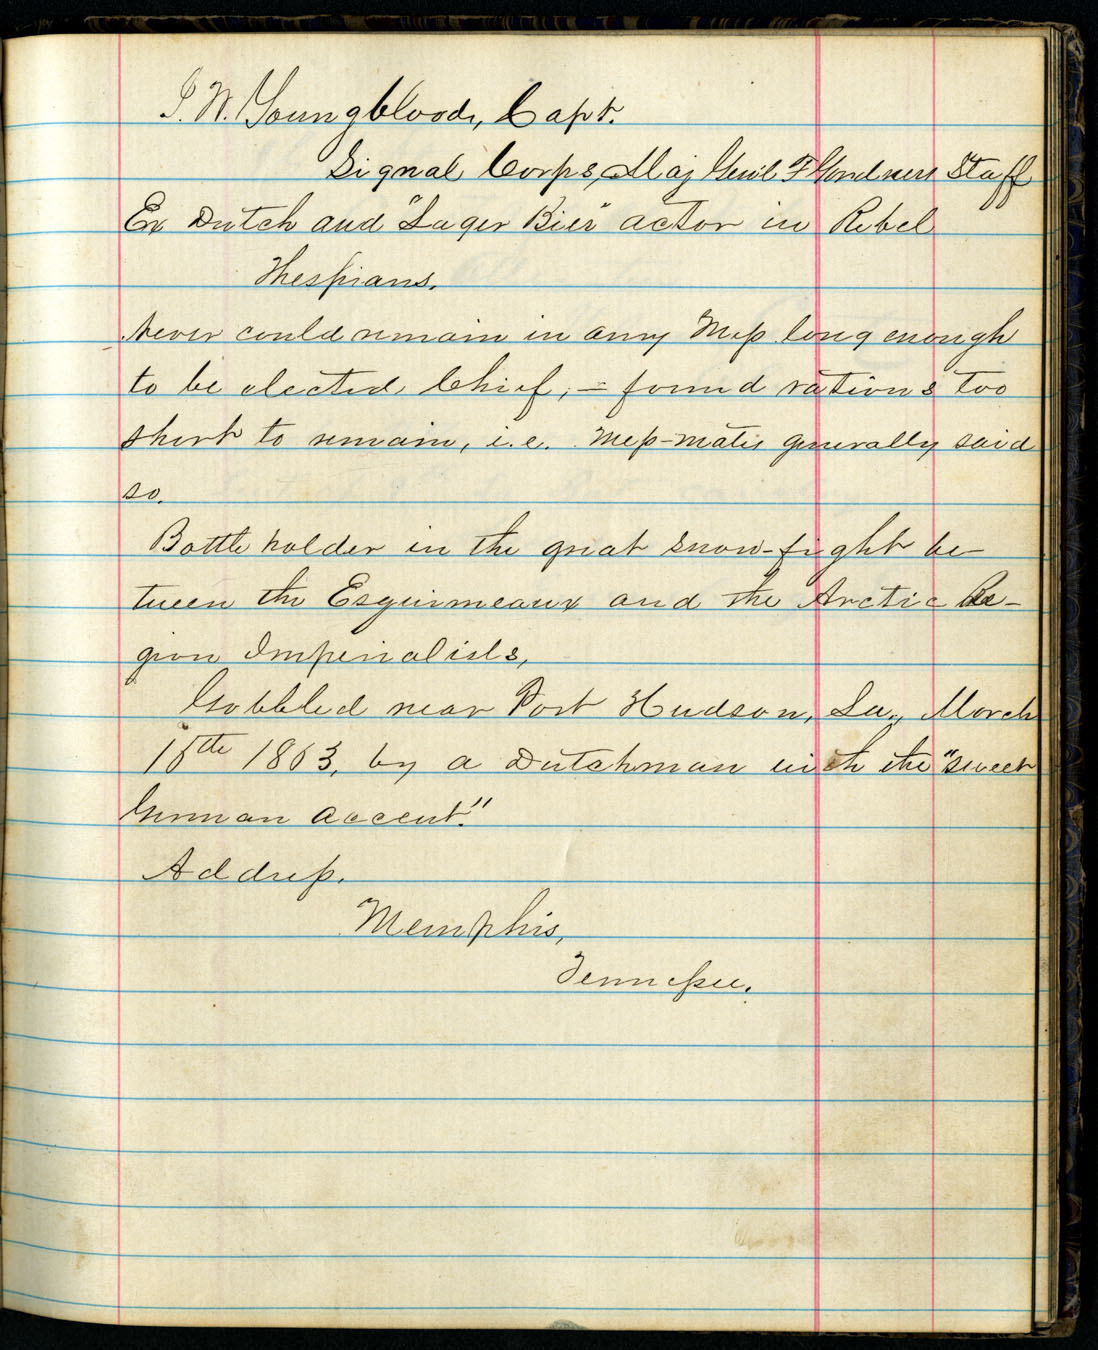 J. W. Youngblood, Capt.
Signal Corps, Maj Genl F Gardners Staff
Ex Dutch and "Lager Bier" actor in Rebel
Thespians.
Never could remain in any Mess long enough
to be elected Chief, = found rations too
short to remain, i.e. Mess-mates generally said
so.
Bottle holder in the great snow-fight be-
tween the Esquimeaux and the Arctic Re-
gion Imperialists,
Gobbled near Port Hudson, La., March
15th 1863, by a Dutchman with the "sweet
German accent."
Address.
Memphis,
Tennessee.